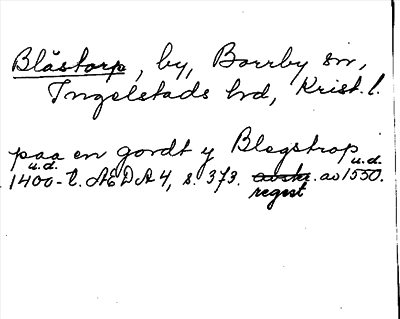 Blåstorp, by, Borrby sn,
Ingelstads hd, Krist. l.
paa en gordt y Blegstrop
u.d. 1400-t. ÆDA 4, s. 373. avskr. regest av u.d. 1550.